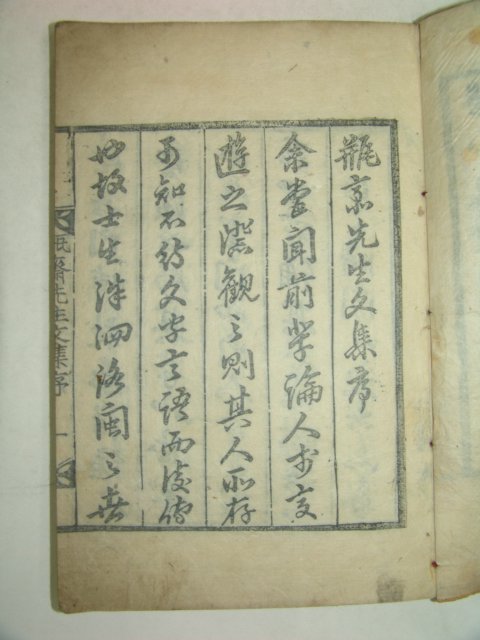 瓶窩先生文集序
余嘗聞前輩論人於交
遊之際觀之則其人所存
可知不待文字言語而後傳
也故士生洙泗洛閩之世
瓶窩先生文集序 一